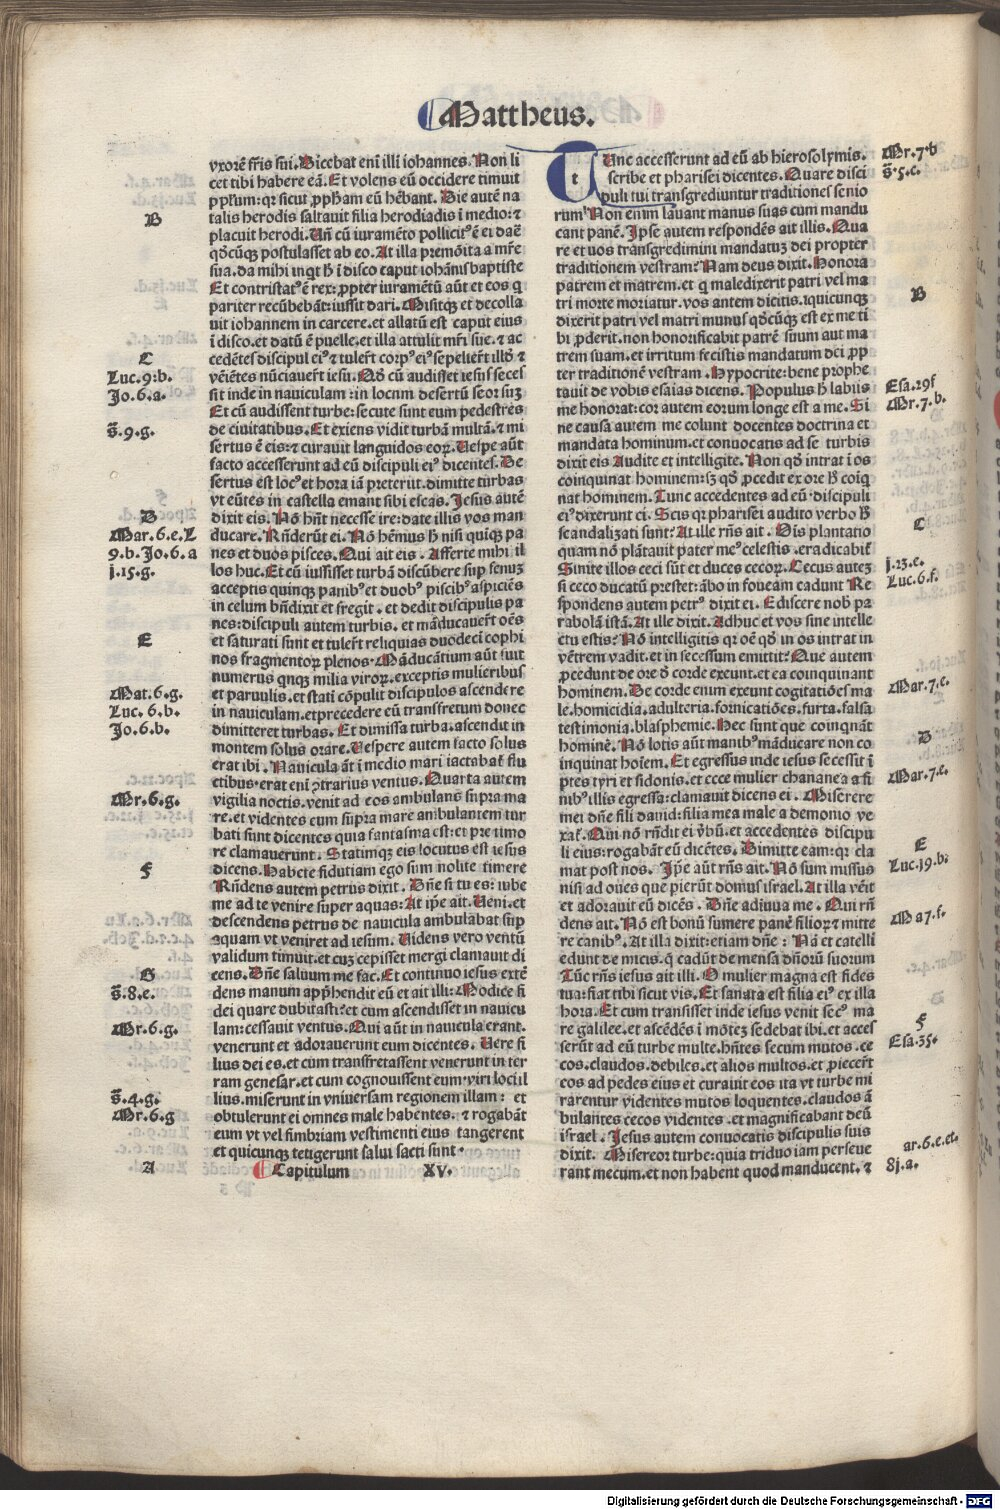 Mattheus.
vxorē fr̄is sui. Dicebat eni illi iohannes. Non li
cet tibi habere eā. Et volens eū occidere timuit
pp̄l'um: qr sicut ꝓph̄am eū hēbant. Die autē na
B
talis herodis saltauit filia herodiadis ī medio: ⁊
placuit herodi. Uñ cū iuramēto pollicit' ē ei daē
qd̄cūqꝫ postulasset ab eo. At illa premōita a mr̄e
sua. da mihi inqt h̄ ī disco caput iohānis baptiste
Et contristat' ē rex: ꝓpter iuramētū aūt et eos q
pariter recūbebāt: iussit dari. Misitqꝫ et decolla
uit iohannem in carcere. et allatū est caput eius
ī disco. et datū ē puelle. et illa attulit mr̄i sue. ⁊ ac
C
cedētes discipuli ei' ⁊ tuler̄t corp' ei' ⁊ sepelier̄t illd̄ ⁊
Luc.9.b.
vēiētes nūciauer̄t iesu. Qd̄ cū audisset iesus seces
Jo.6.a.
sit inde in nauiculam: in locum desertū seorsuꝫ
Et cū audissent turbe: secute sunt eum pedestres
s̄.9.g.
de ciuitatibus. Et exiens vidit turbā multā. ⁊ mi
sertus ē eis: ⁊ curauit languidos eoꝝ. Uespe aūt
facto accesserunt ad eū discipuli ei' dicentes. De
sertus est loc' et hora iā preterijt. dimitte turbas
vt eūtes in castella emant sibi escas. Jesus autē
D
dixit eis. Nō hn̄t necesse ire: date illis vos man
Mar.6.e.L
ducare. Rn̄derūt ei. Nō hēmus h̄ nisi quiqꝫ pa
9.b.Jo.6.a
nes et duos pisces. Qui ait eis. Afferte mihi il
j.15.g.
los huc. Et cū iussisset turbā discūbere sup̄ fenuꝫ
acceptis quinqꝫ panib' et duob' piscib' aspiciēs
in celum bn̄dixit et fregit. et dedit discipulis pa
nes: discipuli autem turbis. et māducauer̄t oēs
E
et saturati sunt et tuler̄t reliquias duodeci cophi
nos fragmentoꝝ plenos. Māducātium aūt fuit
numerus qnqꝫ milia viroꝝ. exceptis mulieribus
Mat.6.g.
et paruulis. et stati cōpulit discipulos ascendere
Luc.6.b.
in nauiculam. et precedere eū transfretum donec
Jo.6.b.
dimitteret turbas. Et dimissa turba. ascendit in
montem solus orare. Uespere autem facto solus
erat ibi. Nauicula āt ī medio mari iactabat̄ flu
ctibus. erat eni ꝯtrarius ventus. Quarta autem
Mr.6.g.
vigilia noctis. venit ad eos ambulans supra ma
re. et videntes eum supra mare ambulantem tur
bati sunt dicentes quia fantasma est: et pre timo
re clamauerunt. Statimqꝫ eis locutus est iesus
F
dicens. Habete fidutiam ego sum nolite timere
Rn̄dens autem petrus dixit. Dn̄e si tu es: iube
me ad te venire super aquas: At ip̄e ait. Ueni. et
descendens petrus de nauicula ambulabat sup̄
aquam vt veniret ad iesum. Uidens vero ventū
validum timuit. et cuꝫ cepisset mergi clamauit di
G
cens. Dn̄e saluum me fac. Et continuo iesus extē
s̄.8.e.
dens manum app̄hendit eū et ait illi: Modice fi
dei quare dubitasti: et cum ascendisset in nauicu
Mr.6.g.
lam: cessauit ventus. Qui aūt in nauicula erant.
venerunt et adorauerunt eum dicentes. Uere fi
lius dei es. et cum transfretassent venerunt in ter
ram genesar. et cum cognouissent eum. viri loci il
s̄.4.g.
lius. miserunt in vniuersam regionem illam: et
Mr.6.g
obtulerunt ei omnes male habentes. ⁊ rogabāt
eum vt vel fimbriam vestimenti eius tangerent
et quicunqꝫ tetigerunt salui facti sunt.
A
Capitulum XV.
Tunc accesserunt ad eū ab hierosolymis.
Mr.7.b
scribe et pharisei dicentes. Quare disci
s̄.5.c.
puli tui transgrediuntur traditiones senio
rum? Non enim lauant manus suas cum mandu
cant panē. Ip̄se autem respondēs ait illis. Qua
re et vos transgredimini mandatuꝫ dei propter
traditionem vestram? Nam deus dixit. Honora
patrem et matrem. et q maledixerit patri vel ma
B
tri morte moriatur. vos antem dicitis. ꝯquicunqꝫ
dixerit patri vel matri munus qd̄cūqꝫ est ex me ti
bi ꝓderit. non honorificabit patrē suum aut ma
trem suam. et irritum fecistis mandatum dei ꝓp
ter traditionē vestram. Hypocrite: bene prophe
tauit de vobis esaias dicens. Populus h̄ labiis
Esa.29f
me honorat: cor autem eorum longe est a me. Si
Mr.7.b.
ne causa autem me colunt docentes doctrina et
mandata hominum. et conuocatis ad se turbis
dixit eis Audite et intelligite. Non qd̄ intrat ī os
coinquinat hominem: sꝫ qd̄ ꝓcedit ex ore h̄ coiq
nat hominem. Tunc accedentes ad eū discipuli
ei' dixerunt ei. Scis qr pharisei audito verbo h̄
C
scandalizati sunt? At ille rn̄s ait. Ois plantatio
quam nō plātauit pater me' celestis. eradicabit̄
j.23.c.
Sinite illos ceci sūt et duces cecoꝝ. Cecus auteꝫ
Luc.6.f.
si ceco ducatū prestet: ābo in foueam cadunt Re
spondens autem petr' dixit ei. Edissere nob' pa
rabolā istā. At ille dixit. Adhuc et vos sine intelle
ctu estis? Nō intelligitis qr oē qd̄ in os intrat in
vētrem vadit. et in secessum emittit? Que autem
ꝓcedunt de ore d̄ corde exeunt. et ea coinquinant
Mar.7.c.
hominem. De corde enim exeunt cogitatiōes ma
le. homicidia. adulteria. fornicatiōes. furta. falsa
testimonia. blasphemie. Hec sunt que coinqnāt
D
hominē. Nō lotis aūt manib' māducare non co
inquinat hoīem. Et egressus inde iesus secessit ī
Mar.7.e.
ptes tyri et sidonis. et ecce mulier chananea a fi
nib' illis egressa: clamauit dicens ei. Miserere
mei dn̄e fili dauid: filia mea male a demonio ve
xat̄. Qui nō rn̄dit ei v̄bū. et accedentes discipu
E
li eius: rogabāt eū dicētes. Dimitte eam: qr cla
Luc.19.b:
mat post nos. Ip̄e aūt rn̄s ait. Nō sum missus
nisi ad oues que pierūt domus israel. At illa vēit
et adorauit eū dicēs. Dn̄e adiuua me. Qui rn̄
Ma 7.f.
dens ait. Nō est bonū sumere panē filioꝝ ⁊ mitte
re canib'. At illa dixit: etiam dn̄e: Nā et catelli
edunt de micis. q cadūt de mensa dn̄orū suorum
Tūc rn̄s iesus ait illi. O mulier magna est fides
tua: fiat tibi sicut vis. Et sanata est filia ei' ex illa
hora. Et cum transisset inde iesus venit sec' ma
F
re galilee. et ascēdēs ī mōteꝫ sedebat ibi. et acces
Esa.35.
serūt ad eū turbe multe. hn̄tes secum mutos. ce
cos. claudos. debiles. et alios multos. et ꝓiecer̄t
eos ad pedes eius et curauit eos ita vt turbe mi
rarentur videntes mutos loquentes. claudos ā
bulantes cecos videntes. et magnificabant deū
israel. Jesus autem conuocatis discipulis suis
ar.6.e.et.
dixit. Misereor turbe: quia triduo iam perseue
8j.a.
rant mecum. et non habent quod manducent. ⁊
Digitalisierung gefördert durch die Deutsche Forschungsgemeinschaft - DFG